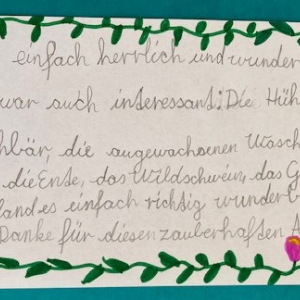 einfach herrlich und wunder
war auch interessant: Die Hüh
hbär, die angewachsenen Wasch
die Ente, das Wildschwein, das G
fand es einfach richtig wunderb
Danke für diesen zauberhaften A